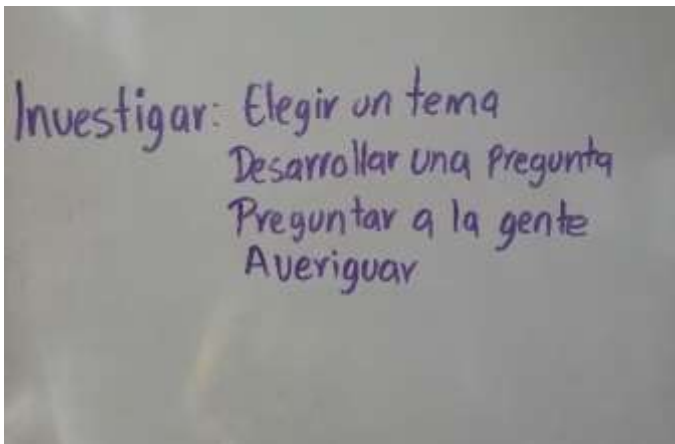 Investigar: Elegir un tema
Desarrollar una pregunta
Preguntar a la gente
Averiguar